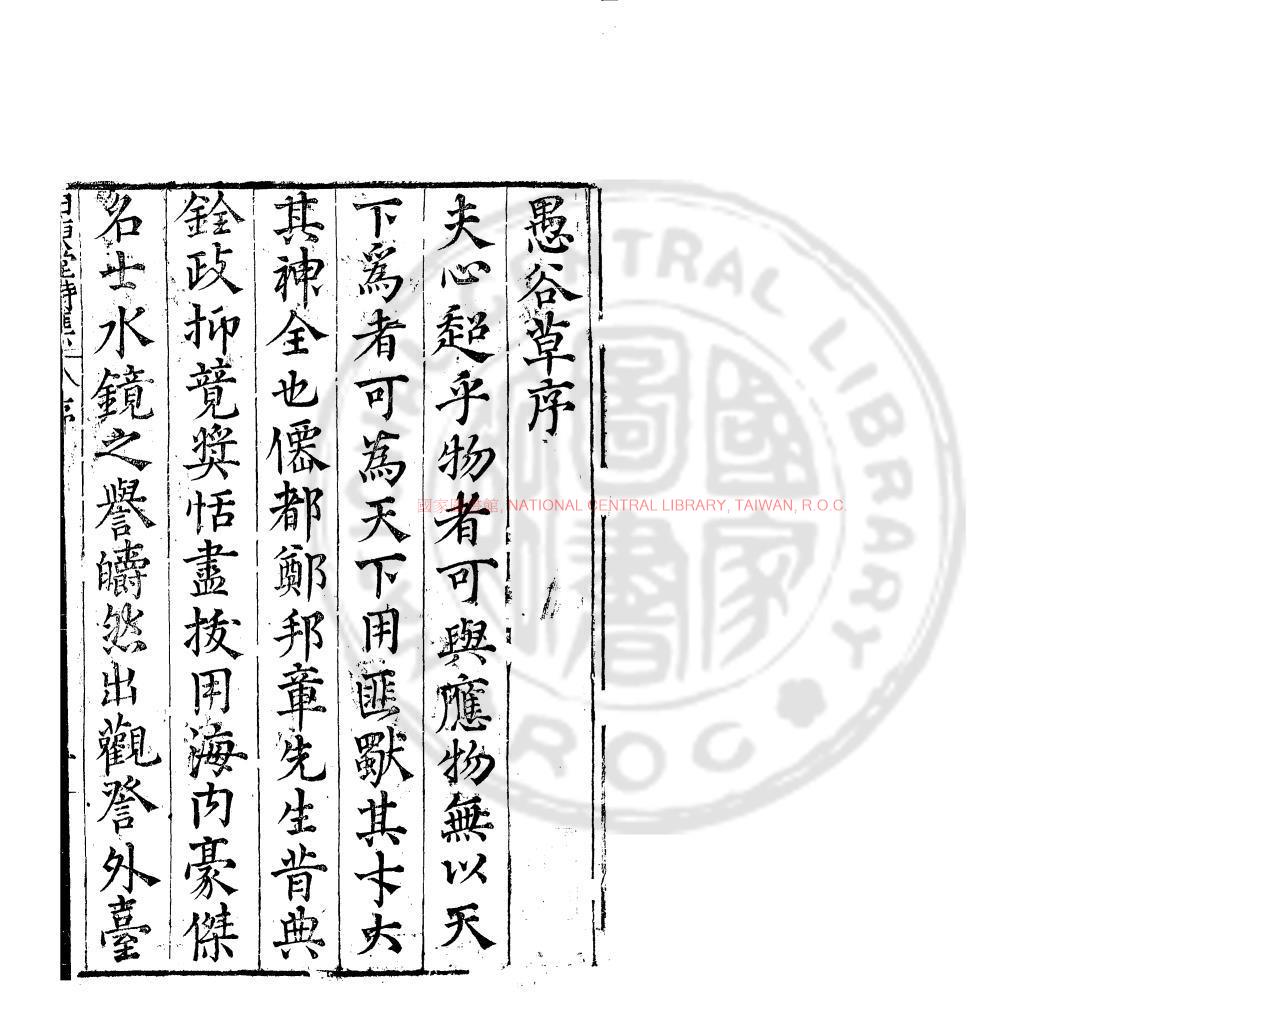 愚谷草序
夫心超乎物者可與應物無以天
下爲者可為天下用匪獸其卞大
其神全也僊都鄭邦章先生昔典
銓政抑競奨恬盡拔用海內豪傑
名士水鏡之譽皭然出觀詧外臺
國家圖書館, NATIONAL CENTRAL LIBRARY, TAIWAN, R.O.C.
CENTRAL LIBRARY
R.O.C